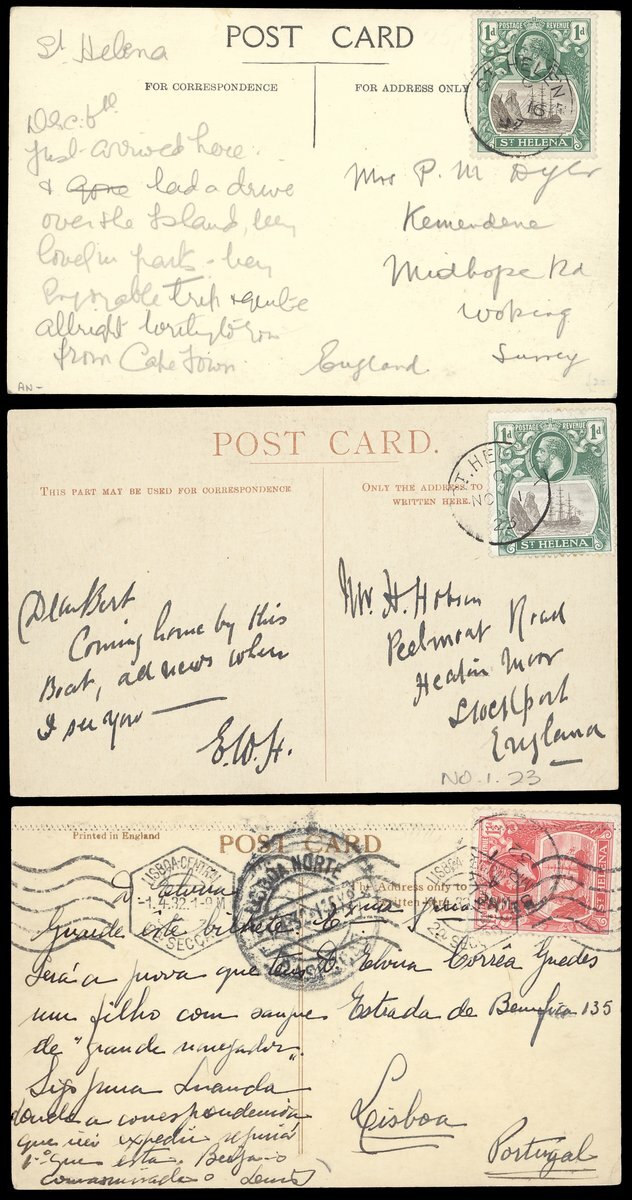 St Helena
POST CARD
FOR CORRESPONDENCE
FOR ADDRESS ONLY
1d POSTAGE & REVENUE 1d
ST HELENA
Dec: 6th
Just arrived here
& gone had a drive
over the Island, very
lovel in parts - very
Enjoyable trip & quite
allright writing to you
from Cape Town.
Mrs P. M. Dyer
Kemendene
Midhope Rd
Woking
Surrey
England
AN-
POST CARD.
THIS PART MAY BE USED FOR CORRESPONDENCE
ONLY THE ADDRESS TO
WRITTEN HERE.
1d POSTAGE & REVENUE 1d
ST HELENA
Dear Bert
Coming home by this
Boat, all news when
I see you
E.W.H.
Mr. H. Hobson
Peelmoat Road
Heaton Moor
Stockport
England
NO. 1. 23
Printed in England
POST CARD
The Address only to
written here
LISBOA-CENTRAL
-1.4.32.1-9M
2a SECÇÃO
LISBOA NORTE
ST HELENA
Guarde este bilhete
Será a prova que tem
um filho com sangue
de "grande navegador".
Sigo para Luanda
donde a correspondencia
que irei expedir
D. Elvira Corrêa Guedes
Estrada de Bemfica 135
Lisboa
Portugal